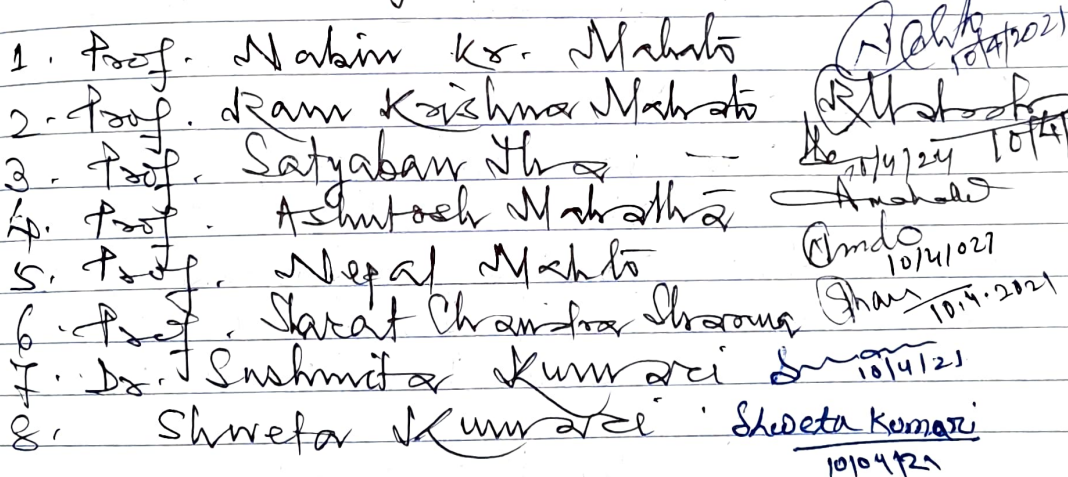 1. Prof. Nabin Kr. Mahato 10/4/2021
2. Prof. Ram Krishna Mahato 10/4
3. Prof. Satyaban Jha - 10/4/24
4. Prof. Ashutosh Mahatha
5. Prof. Nepal Mahto 10/4/021
6. Prof. Sarat Chandra Sharma 10.4.2021
7. Dr. Sushmita Kumari 10/4/21
8. Shweta Kumari Shweta Kumari
10/04/21